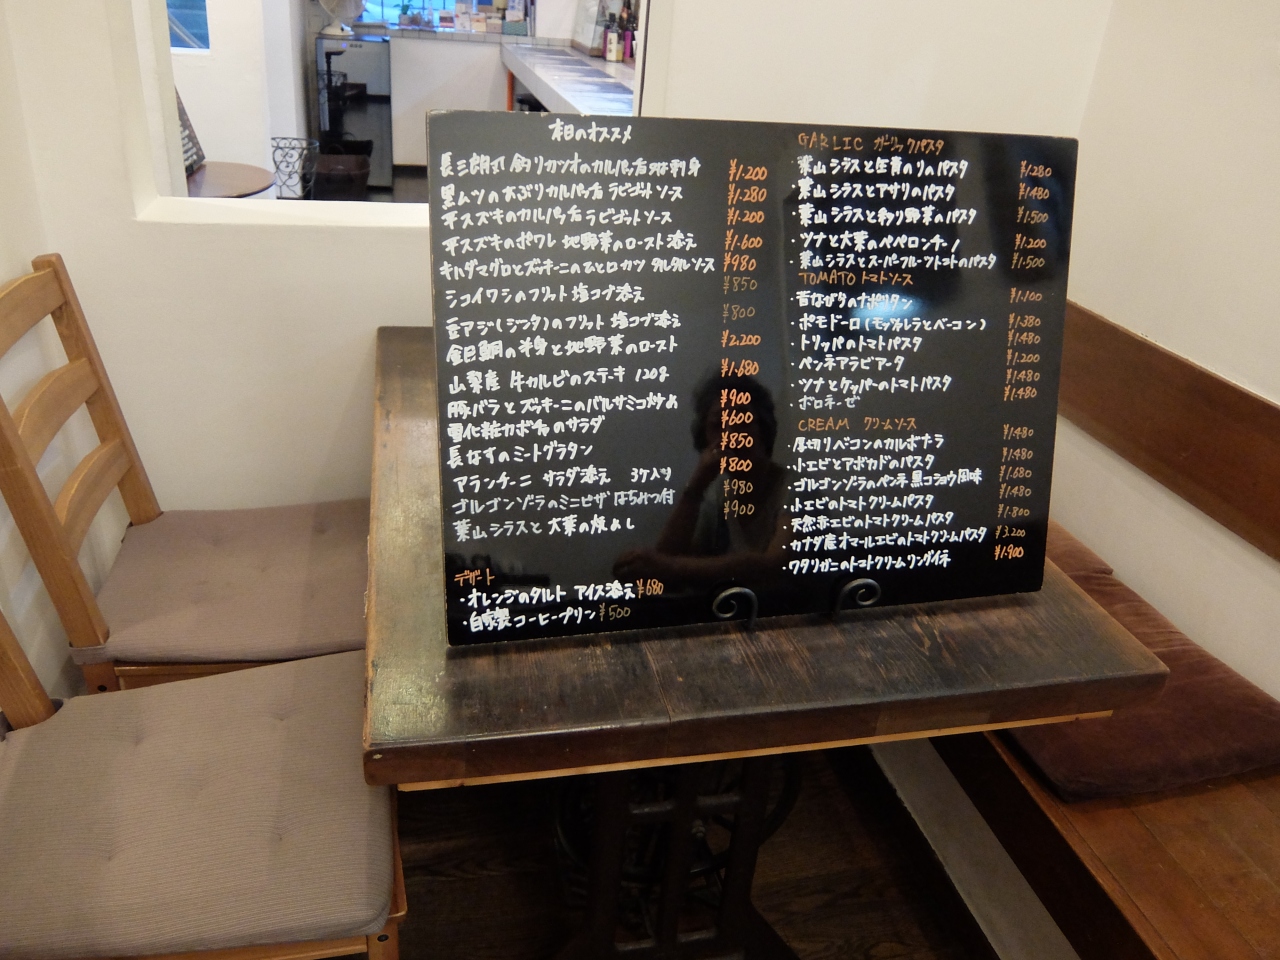 本日のオススメ
長三朗丸 釣りカツオのカルパッチョ 又は 刺身 ¥1.200
黒ムツの大ぶりカルパッチョ ラビゴットソース ¥1.280
平スズキのカルパッチョ ラビゴットソース ¥1.200
平スズキのポワレ 地野菜のロースト添え ¥1.600
キハダマグロとズッキーニのひとロカツ タルタルソース ¥980
シコイワシのフリット 塩コブ添え ¥850
豆アジ(ジンタ)のフリット 塩コブ添え ¥800
金目鯛の半身と地野菜のロースト ¥2.200
山梨産 牛カルビのステーキ 120g ¥1.680
豚バラとズッキーニのバルサミコ炒め ¥900
雪化粧カボチャのサラダ ¥600
長なすのミートグラタン ¥850
アランチーニ サラダ添え 3ケ入り ¥800
ゴルゴンゾーラのミニピザ はちみつ付 ¥980
葉山シラスと大葉の焼めし ¥900
デザート
・オレンジのタルト アイス添え ¥680
・自家製コーヒープリン ¥500
GARLIC ガーリックパスタ
・葉山シラスと生青のりのパスタ ¥1.280
・葉山シラスとアサリのパスタ ¥1.480
・葉山シラスと彩り野菜のパスタ ¥1.500
・ツナと大葉のペペロンチーノ ¥1.200
・葉山シラスとスーパーフルーツトマトのパスタ ¥1.500
TOMATO トマトソース
・昔ながらのナポリタン ¥1.100
・ポモドーロ(モッツァレラとベーコン) ¥1.380
・トリッパのトマトパスタ ¥1.480
・ペンネアラビアータ ¥1.200
・ツナとケッパーのトマトパスタ ¥1.480
・ボロネーゼ ¥1.480
CREAM クリームソース
・厚切りベーコンのカルボナーラ ¥1.480
・小エビとアボカドのパスタ ¥1.480
・ゴルゴンゾーラのペンネ 黒コショウ風味 ¥1.680
・小エビのトマトクリームパスタ ¥1.480
・天然赤エビのトマトクリームパスタ ¥1.800
・カナダ産オマールエビのトマトクリームパスタ ¥3.200
・ワタリガニのトマトクリームリングイネ ¥1.900